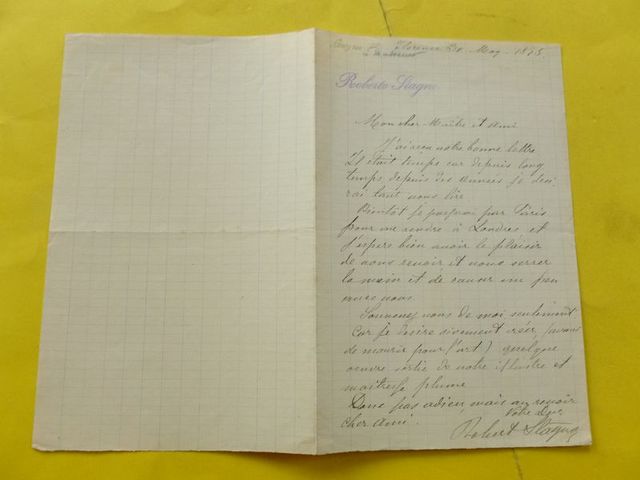 Florence 20 May 1895
Roberto Stagno
Mon cher Maître et Ami
J'ai reçu votre bonne lettre
Il était temps car depuis long
temps depuis des années je dési
rai tant vous lire
Bientôt je passerai par Paris
pour me rendre à Londres et
j'espère bien avoir le plaisir
de vous revoir et vous serrer
la main et de causer un peu
avec vous
Souvenez vous de moi seulement
car je desire vivement créer (avant
de mourir pour l'art) quelque
oeuvre sortie de votre illustre et
maitresse plume
Donc pas adieu mais au revoir
cher Ami.
Votre
Robert Stagno